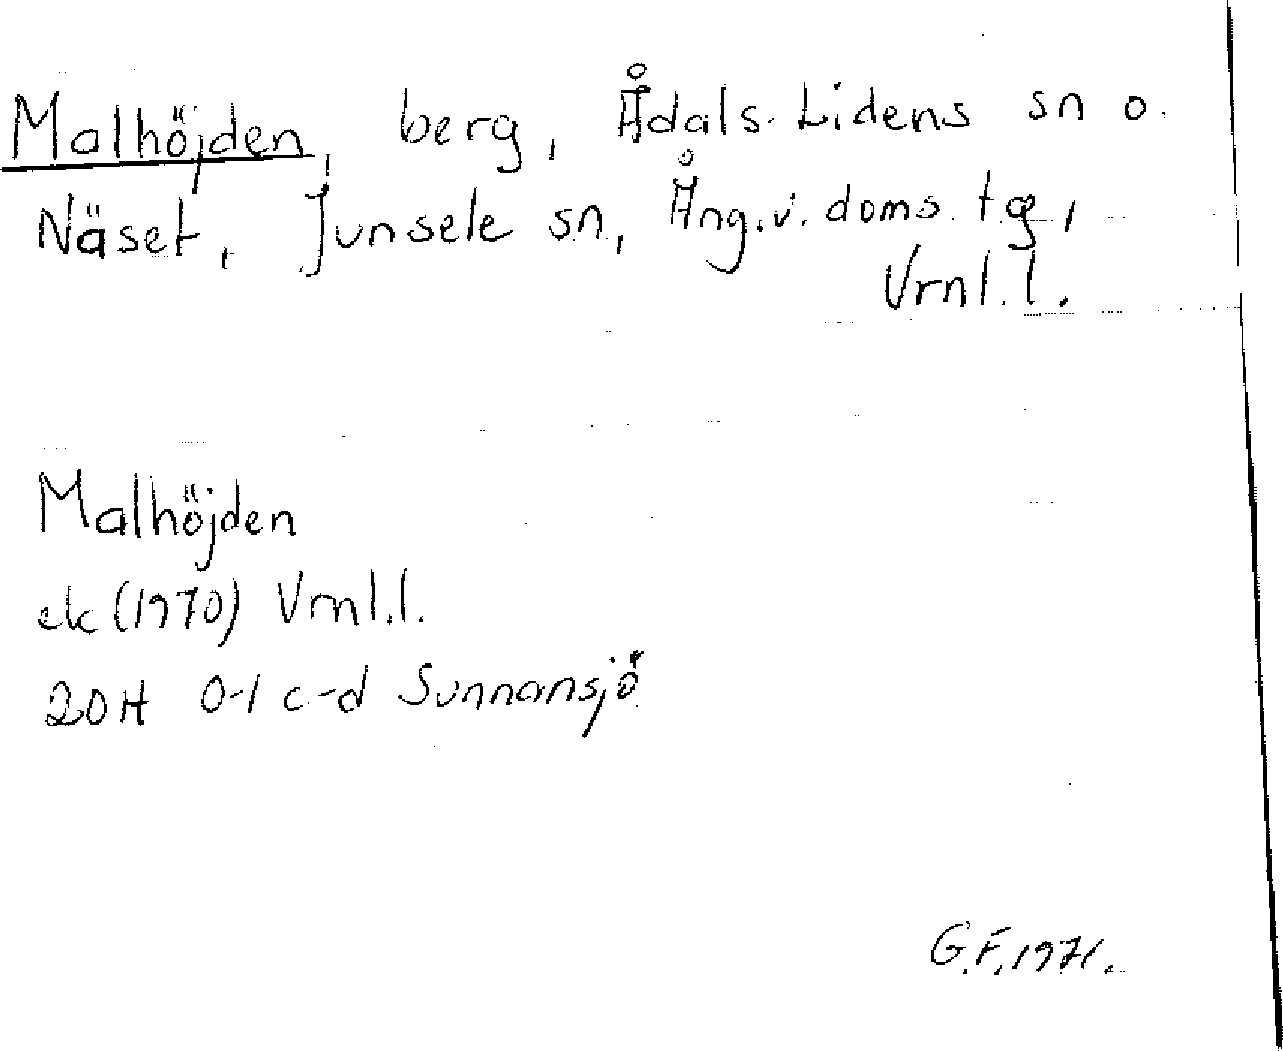 Malhöjden, berg, Ådals-Lidens sn o.
Näset, Junsele sn, Ång.v. doms. tg,
Vrnl.l.
Malhöjden
ek (1970) Vrnl.l.
20H 0-1 c-d Sunnansjö
G.F. 1971.